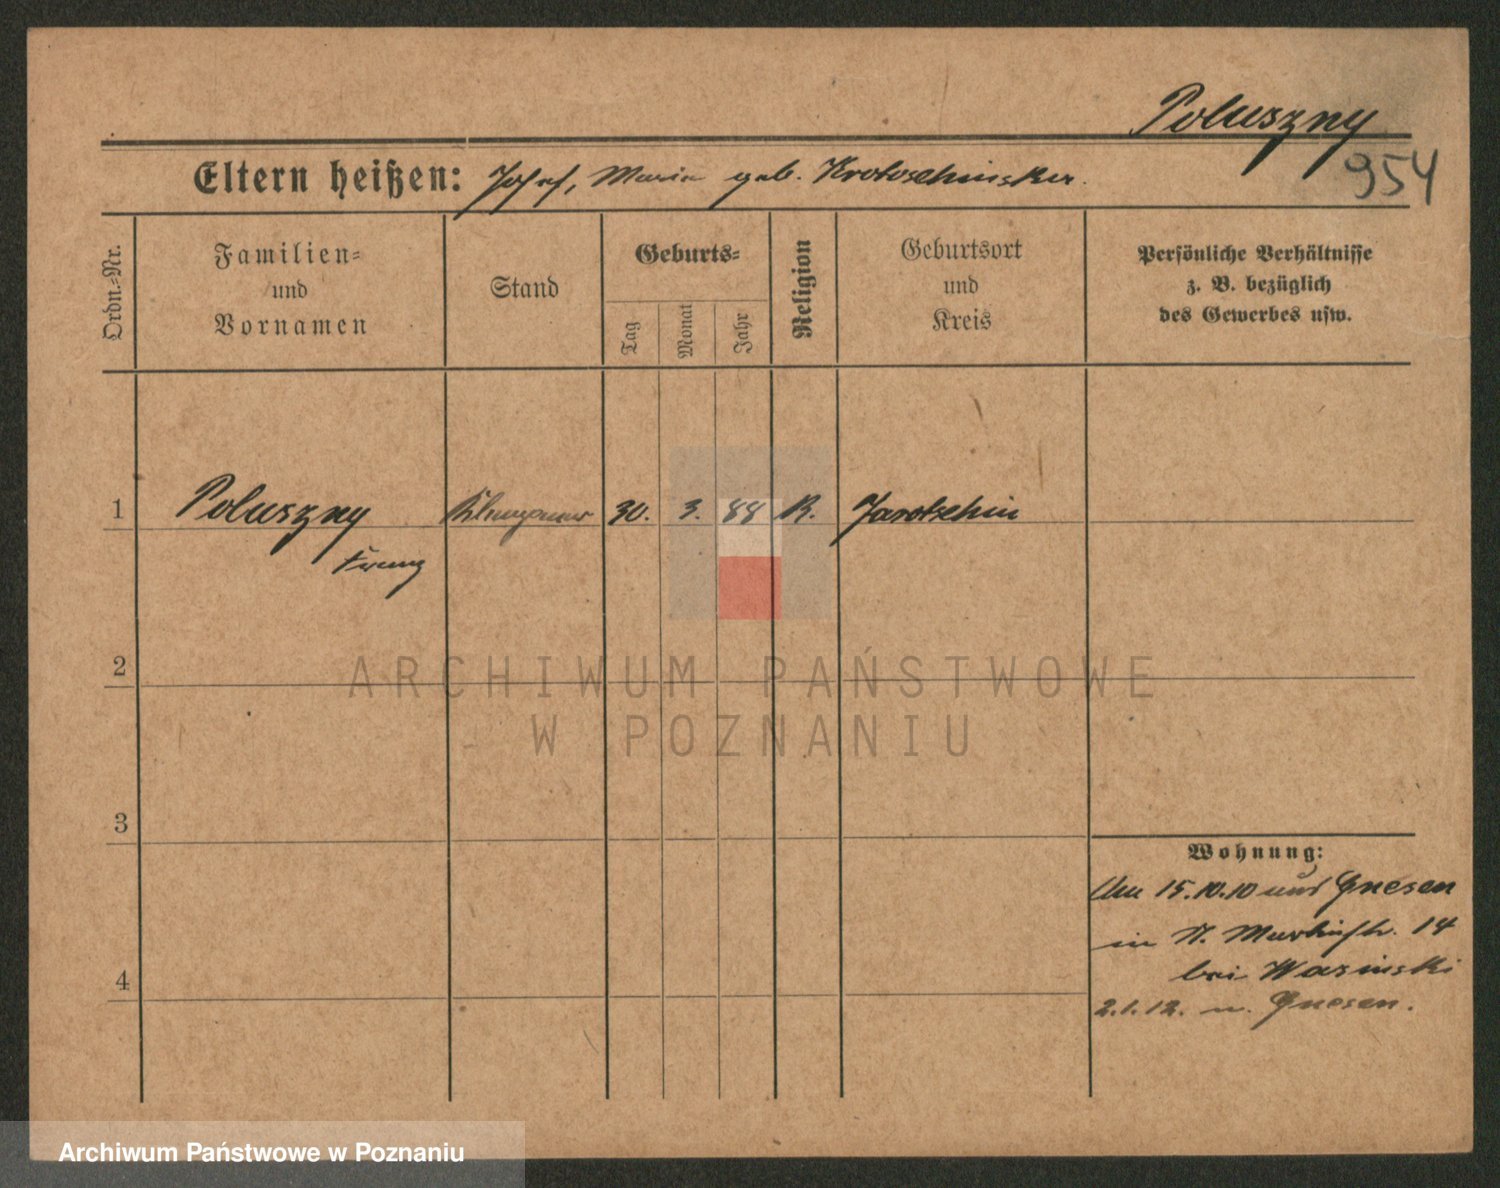 Poluszny
954
Eltern heißen: Josef, Maria geb. Krotoschinska.
Ordn.-Nr.
Familien-
und
Vornamen
Stand
Geburts-
Tag
Monat
Jahr
Religion
Geburtsort
und
Kreis
Persönliche Verhältnisse
z. B. bezüglich
des Gewerbes usw.
1 Poluszny 30. 3. 88 K. Jarotschin
Franz
2
3
4
Wohnung:
15.10.10 Gnesen
in St. Martinstr. 14
bei Wasinski
2.1.12. n. Gnesen.
ARCHIWUM PAŃSTWOWE
W POZNANIU
Archiwum Państwowe w Poznaniu